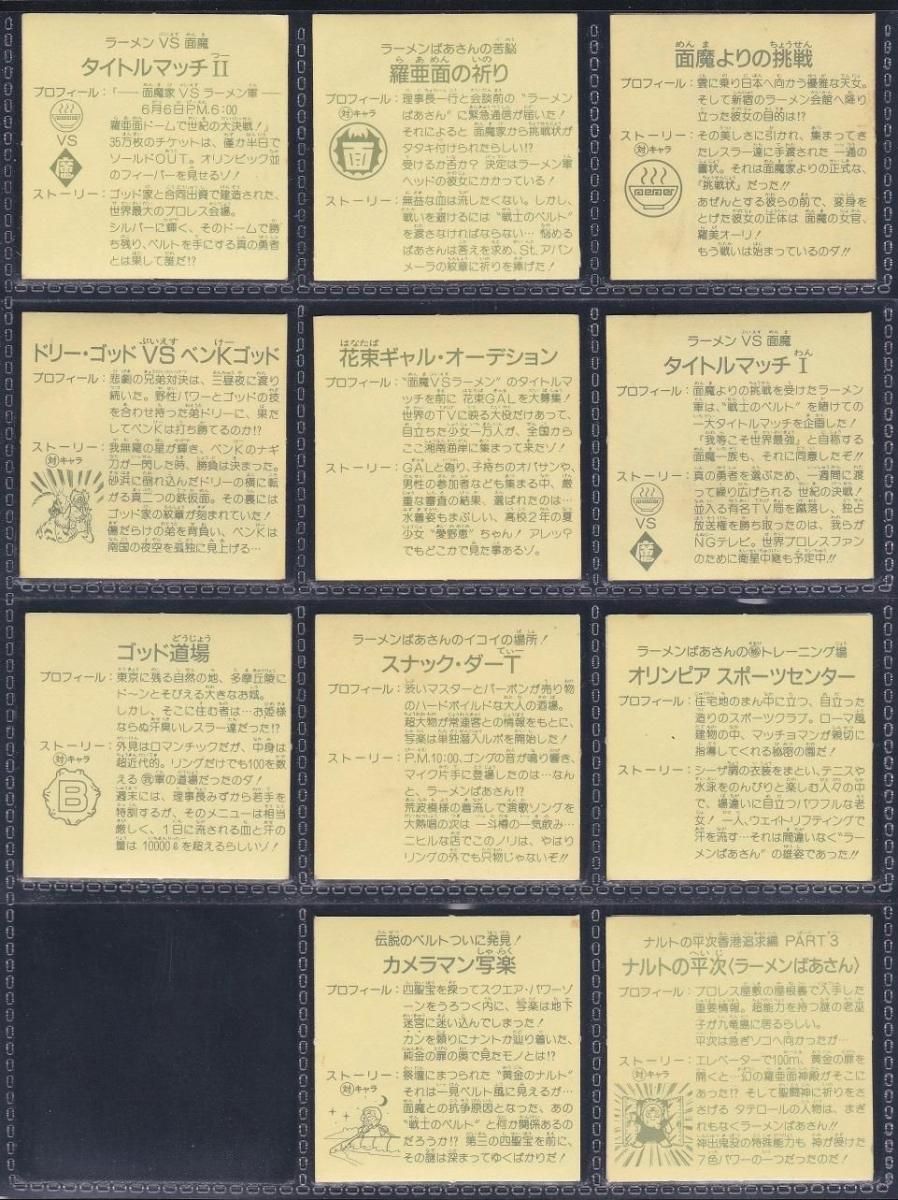 ラーメン VS 面魔
タイトルマッチ II
プロフィール：「── 面魔家 VS ラーメン軍 ──
6月6日P.M.6:00
羅亜面ドームで世紀の大決戦！」
35万枚のチケットは、僅か半日で
ソールドOUT。オリンピック並
のフィーバーを見せるゾ！
VS
魔
ストーリー：ゴッド家と合同出資で建造された、
世界最大のプロレス会場。
シルバーに輝く、そのドームで勝
ち残り、ベルトを手にする真の勇者
とは果して誰だ!?
ラーメンばあさんの苦悩
羅亜面の祈り
プロフィール：理事長一行と会談前の“ラーメン
ばあさん”に緊急通信が届いた！
それによると 面魔家から挑戦状が
タタキ付けられたらしい!?
受けるか否か？ 決定はラーメン軍
ヘッドの彼女にかかっている！
対キャラ
面
ストーリー：無益な血は流したくない。しかし、
戦いを避けるには“戦士のベルト”
を渡さなければならない… 悩める
ばあさんは答えを求め、St.アバン
メーラの紋章に祈りを捧げた！
面魔よりの挑戦
プロフィール：雲に乗り日本へ向かう優雅な天女。
そして新宿のラーメン会館へ降り
立った彼女の目的は!?
ストーリー：その美しさに引かれ、集まってき
たレスラー達に手渡された 一通の
書状。それは面魔家よりの正式な、
「挑戦状」だった!!
あぜんとする彼らの前で、変身を
とげた彼女の正体は 面魔の女官、
羅美オーリ！
もう戦いは始まっているのダ!!
対キャラ
ドリー・ゴッド VS ベンKゴッド
プロフィール：悲劇の兄弟対決は、三昼夜に渡り
続いた。野性パワーとゴッドの技
を合わせ持った弟ドリーに、果た
してベンKは打ち勝てるのか!?
ストーリー：我無羅の星が輝き、ベンKのナギ
刀が一閃した時、勝負は決まった。
砂浜に倒れ込んだドリーの横に転
がる真二つの鉄仮面。その裏には
ゴッド家の紋章が刻まれていた！
傷だらけの弟を背負い、ベンKは
南国の夜空を孤独に見上げる…
対キャラ
花束ギャル・オーデション
プロフィール：“面魔VSラーメン”のタイトルマ
ッチを前に 花束GALを大募集！
世界のTVに映る大役だけあって、
目立ちた少女一万人が、全国から
ここ湘南海岸に集まって来たゾ！
ストーリー：GALと偽り、子持ちのオバサンや、
男性の参加者なども集まる中、厳
重な審査の結果、選ばれたのは…
水着姿もまぶしい、高校2年の夏
少女“愛野恵”ちゃん！ アレッ？
でもどこかで見た事あるゾ。
ラーメン VS 面魔
タイトルマッチ I
プロフィール：面魔よりの挑戦を受けたラーメン
軍は、“戦士のベルト”を賭けての
一大タイトルマッチを企画した！
「我等こそ世界最強」と自称する
面魔一族も、それに同意したぞ!!
ストーリー：真の勇者を選ぶため、一週間に渡
って繰り広げられる 世紀の決戦！
並入る有名TV局を蹴落し、独占
放送権を勝ち取ったのは、我らが
NGテレビ。世界プロレスファン
のために衛星中継も予定中!!
VS
魔
ゴッド道場
プロフィール：東京に残る自然の地、多摩丘陵に
ド〜ンとそびえる大きなお城。
しかし、そこに住む者は…お姫様
ならぬ汗臭いレスラー達だった!?
ストーリー：外見はロマンチックだが、中身は
超近代的。リングだけでも100を数
える 豪華の道場だったのダ！
週末には、理事長みずから若手を
特訓するが、そのメニューは相当
厳しく、1日に流される血と汗の
量は 10000ℓを超えるらしいゾ！
対キャラ
B
ラーメンばあさんのイコイの場所！
スナック・ダーT
プロフィール：渋いマスターとバーボンが売り物
のハードボイルドな大人の酒場。
超大物が常連客との情報をもとに、
写楽は単独潜入ルポを開始した！
ストーリー：P.M.10:00、ゴングの音が鳴り響き、
マイク片手に登場したのは…なん
と、ラーメンばあさん!?
荒波模様の着流しで演歌ソングを
大熱唱の次は 一斗樽の一気飲み…
ニヒルな店でこのノリは、やはり
リングの外でも只物じゃないぞ!!
ラーメンばあさんの㊙トレーニング場
オリンピア スポーツセンター
プロフィール：住宅地のまん中に立つ、目立った
造りのスポーツクラブ。ローマ風
建物の中、マッチョマンが親切に
指導してくれる秘密の園だ！
ストーリー：シーザー調の衣装をまとい、テニスや
水泳をのんびりと楽しむ人々の中
で、場違いに目立つパワフルな老
女！ 一人、ウェイトリフティングで
汗を流す…それは間違いなく“ラー
メンばあさん”の雄姿であった!!
伝説のベルトついに発見！
カメラマン写楽
プロフィール：四聖宝を探ってスクエア・パワーゾ
ーンをうろつく内に、写楽は地下
迷宮に迷い込んでしまった！
カンを頼りにナントか辿り着いた、
純金の扉の奥で見たモノとは!?
ストーリー：祭壇にまつられた“黄金のナルト”
それは一見ベルト風に見えるが…
面魔との抗争原因となった、あの
“戦士のベルト”と何か関係あるの
だろうか!? 第三の四聖宝を前に、
その謎は深まってゆくばかりだ！
対キャラ
ナルトの平次香港追求編 PART3
ナルトの平次〈ラーメンばあさん〉
プロフィール：プロレス屋敷の屋根裏で入手した
重要情報。超能力を持つ謎の老巫
子が九竜島に居るらしい。
平次は急ぎソコへ向かったが…
ストーリー：エレベーターで100m、黄金の扉を
開くと… 幻の羅亜面神殿がそこに
あった!? そして聖闘神に祈りをさ
さげる タテロールの人物は、まぎ
れもなくラーメンばあさん!!
神出鬼没の特殊能力も 神が授けた
7色パワーの一つだったのだ！
対キャラ